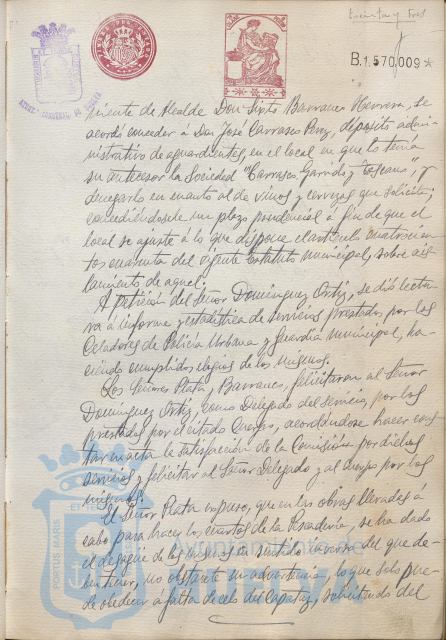 treinta y tres
B.1.570,009*
niente de Alcalde Don Sixto Barranco Herrera, se
acordó conceder á Don José Carrasco Perez, depósito admi-
nistrativo de aguardientes, en el local en que lo tenia
su antecesor la Sociedad "Carrasco, Garrido y Toscano", y
denegarlo en cuanto al de vinos y cervezas que solicita;
concediéndosele un plazo prudencial á fin de que el
local se ajuste á lo que dispone el artículo cuatrocien-
tos cuarenta del vigente Estatuto municipal, sobre ais-
lamiento de aquel.
A petición del Señor Dominguez Ortiz, se dió lectu-
ra á informe y estadística de servicios prestados por los
Celadores de Policía Urbana y Guardia Municipal, ha-
ciendo cumplidos elogios de los mismos.
Los Señores Plata, Barranco, felicitaron al Señor
Dominguez Ortiz, como Delegado del servicio, por los
prestados por el citado Cuerpo, acordándose hacer cons-
tar en acta la satisfacción de la Comisión por dichos
servicios y felicitar al Señor Delegado y al Cuerpo por los
mismos.
El Señor Plata expuso, que en las obras llevadas á
cabo para hacer los cuartos de la Pescadería, se ha dado
el desagüe de los mismos en sentido inverso del que de-
bia tener, no obstante su advertencia, lo que solo pue-
de obedecer á falta de celo del Capataz, solicitando del
PORTUS MARIS
Ayuntamiento de
HUELVA